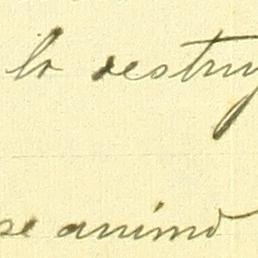 lo restruy
se animó